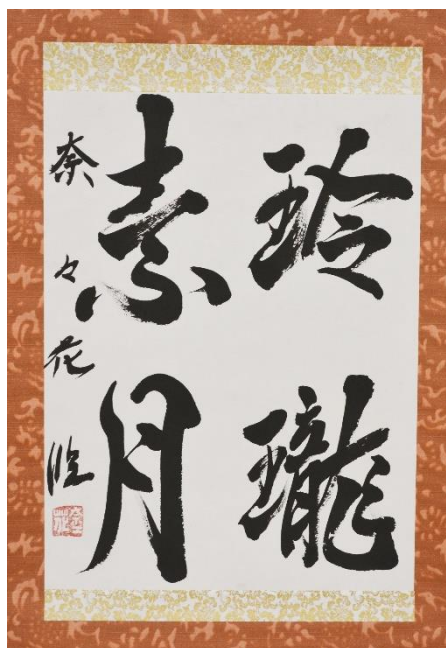 玲瓏
素月
奈々花臨